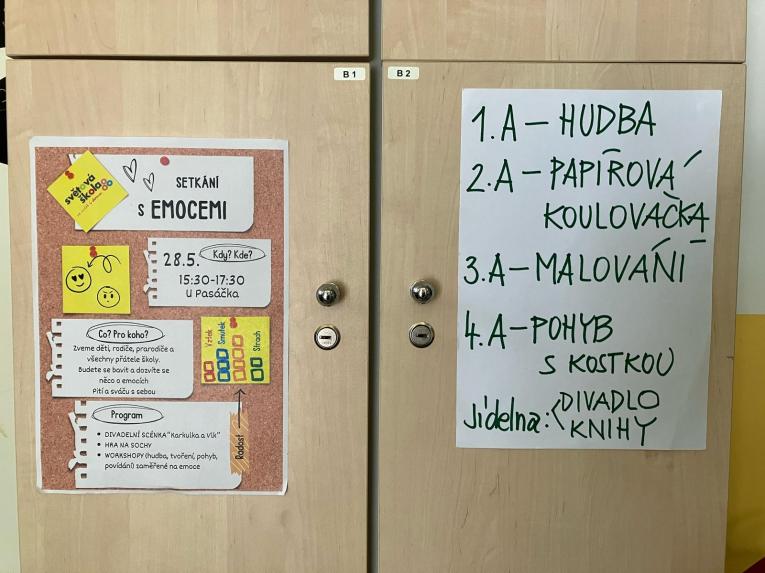 B 1
B 2
světová
škola
SETKÁNÍ
S EMOCEMI
Kdy? Kde?
28.5.
15:30-17:30
U Pasáčka
Co? Pro koho?
Zveme děti, rodiče, prarodiče a
všechny přátele školy.
Budete se bavit a dozvíte se
něco o emocích
Pití a sváču s sebou
Vztek
Smutek
Strach
Radost
Program
• DIVADELNÍ SCÉNKA "Karkulka a Vlk"
• HRA NA SOCHY
• WORKSHOPY (hudba, tvoření, pohyb,
povídání) zaměřené na emoce
1.A – HUDBA
2.A – PAPÍROVÁ
KOULOVAČKA
3.A – MALOVÁNÍ
4.A – POHYB
S KOSTKOU
Jídelna: DIVADLO
KNIHY